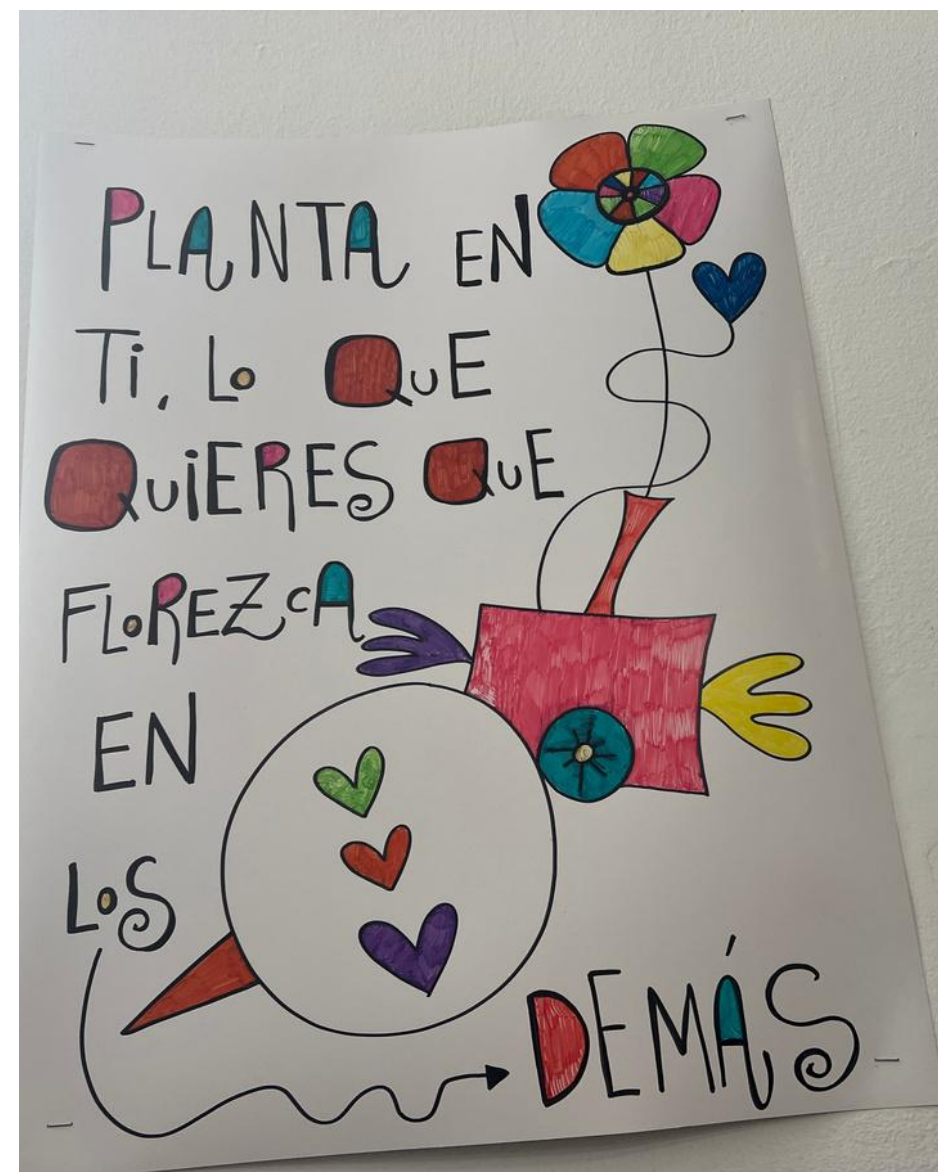 PLANTA EN
Ti, Lo QuE
QuiERES QuE
FLoREZcA
EN
LoS
DEMÁS